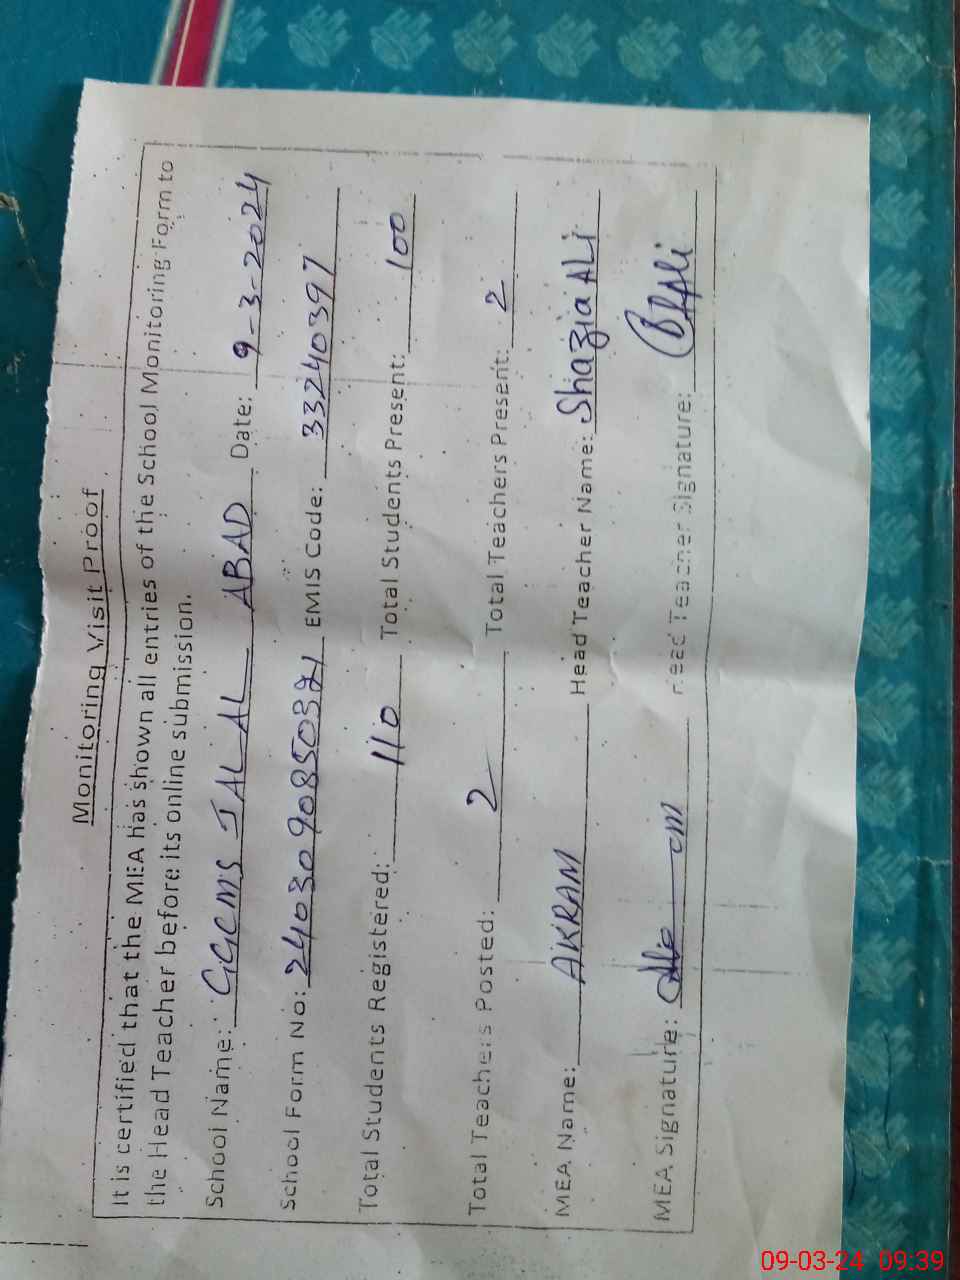 Monitoring Visit Proof
It is certified that the MEA has shown all entries of the School Monitoring Form to
the Head Teacher before its online submission.
School Name: GGCMS JALAL ABAD Date: 9-3-2024
School Form No: EMIS Code: 33240397
Total Students Registered: 110 Total Students Present: 100
Total Teachers Posted: 2 Total Teachers Present: 2
MEA Name: AKRAM Head Teacher Name: Shazia ALi
MEA Signature: Head Teacher Signature:
09-03-24 09:39